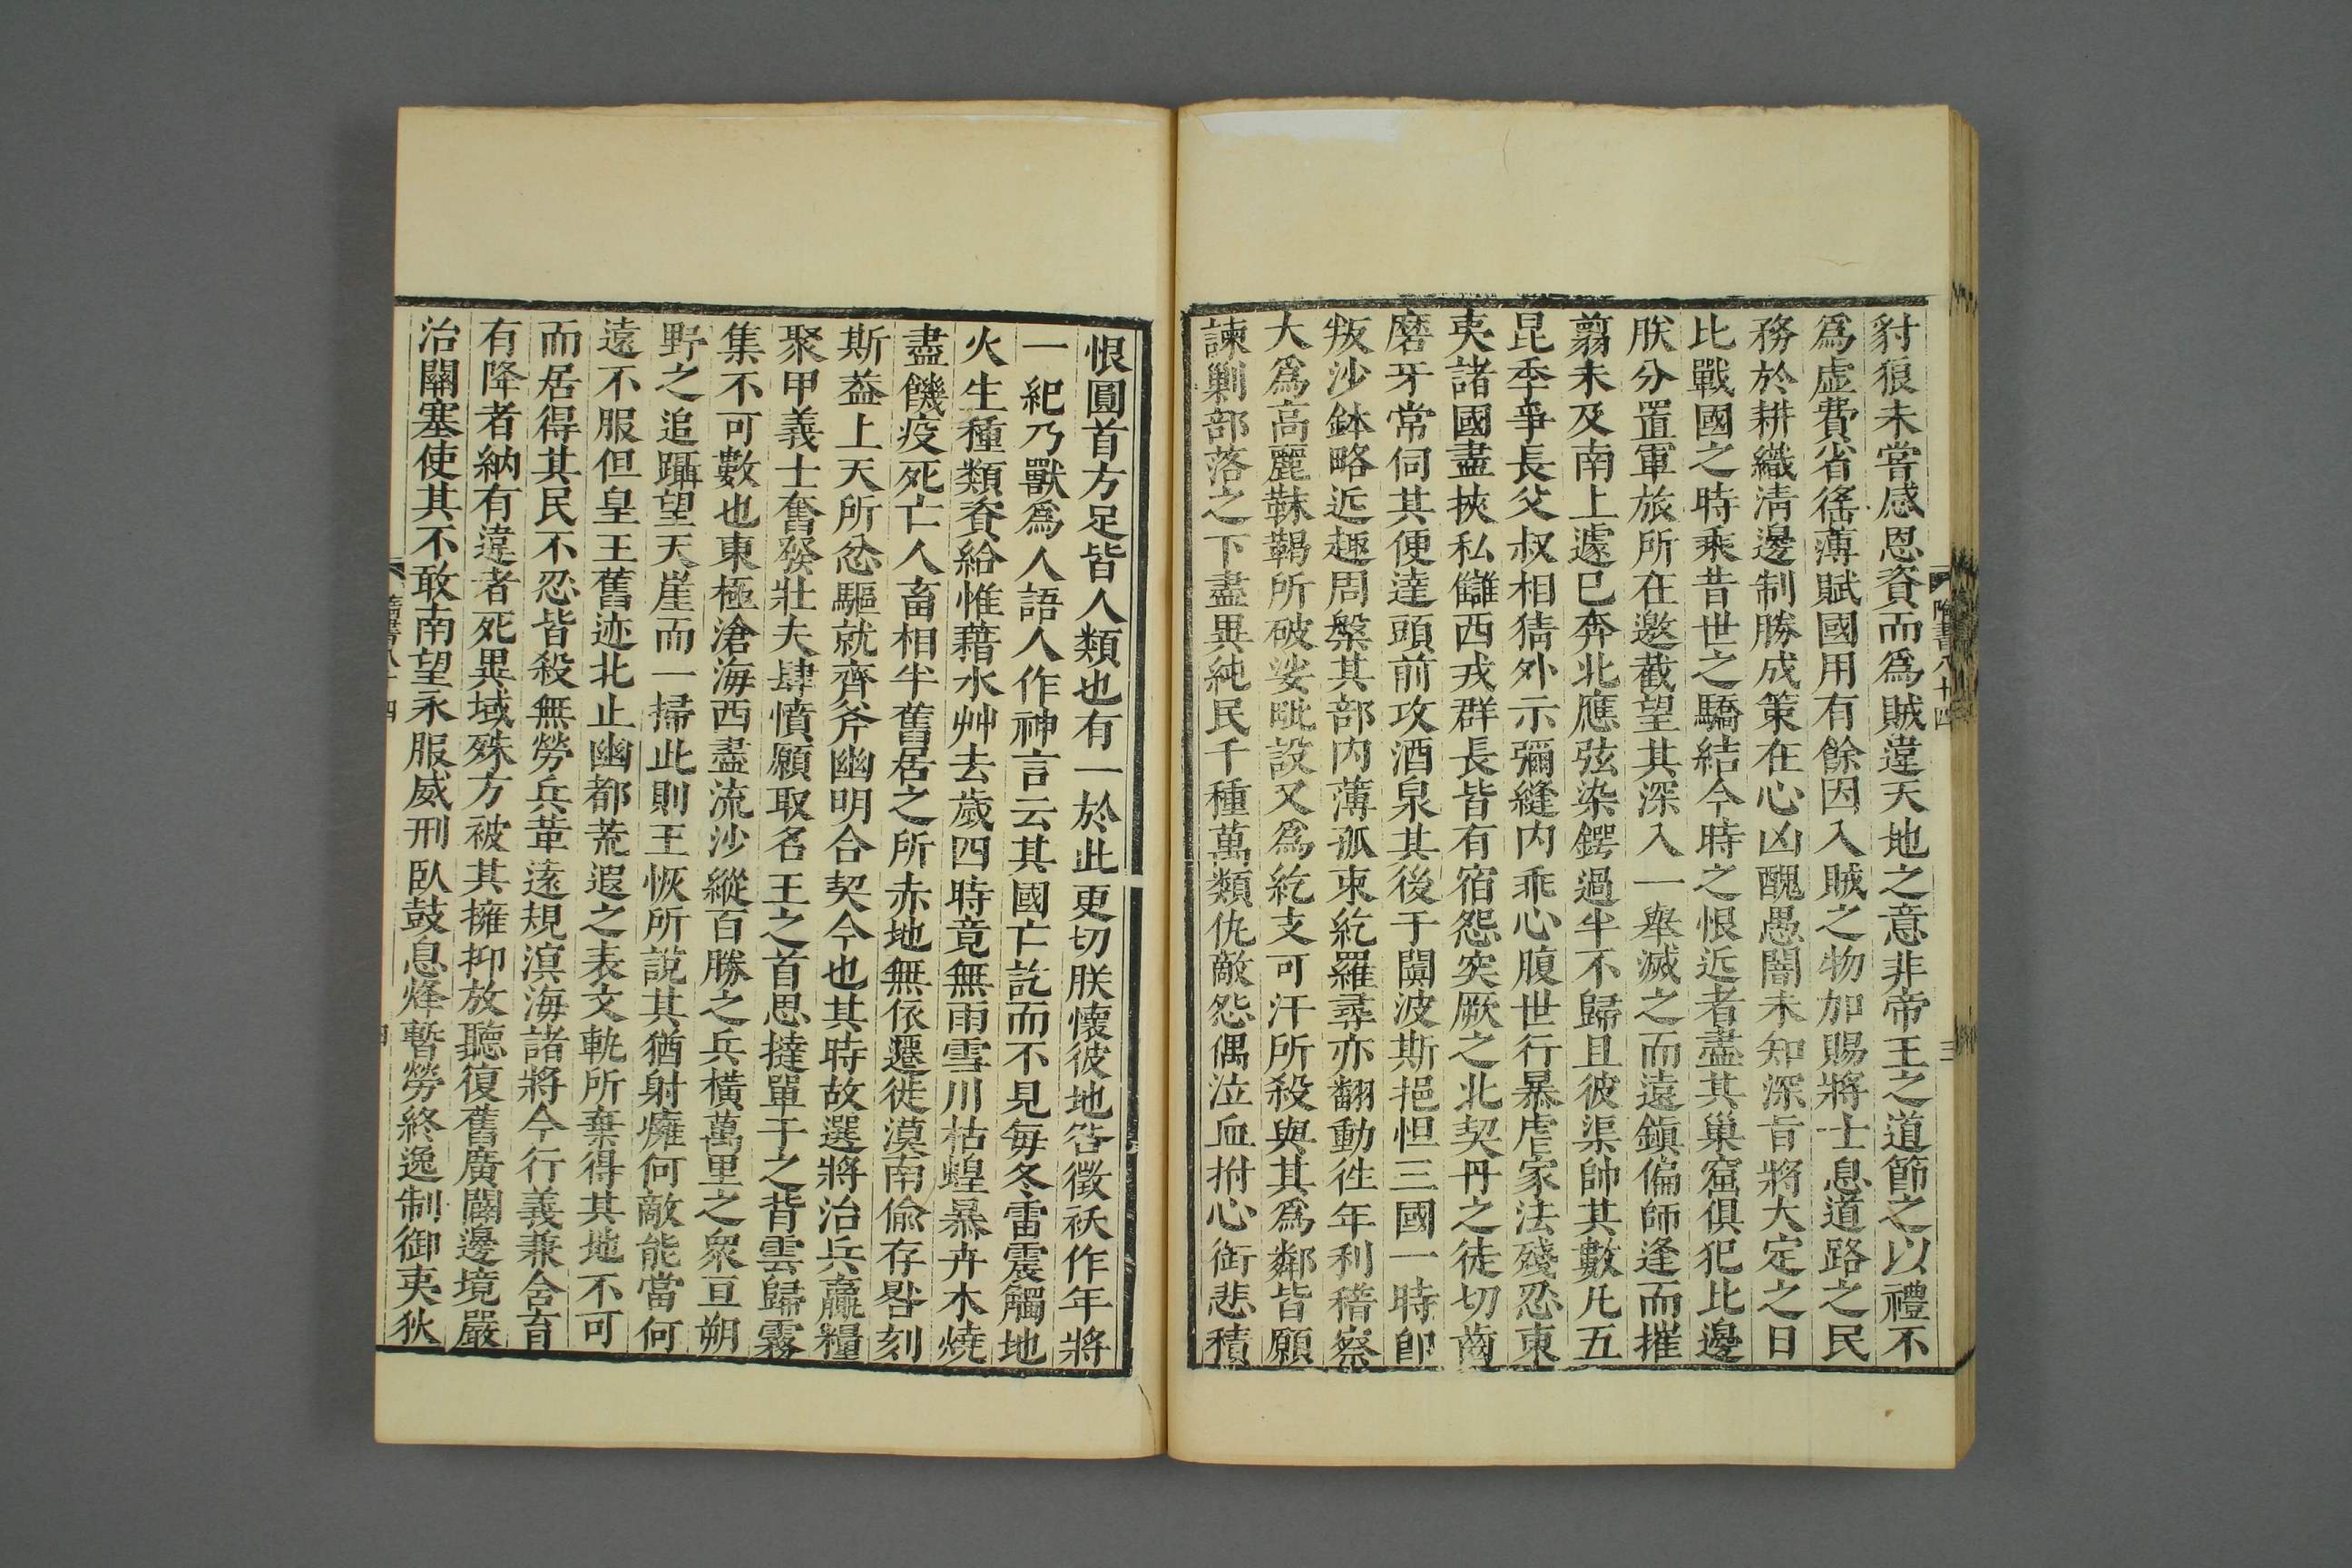 豺狼未嘗感恩資而爲賊違天地之意非帝王之道節之以禮不
爲虚費省徭薄賦國用有餘因入賊之物加賜將士息道路之民
務於耕織淸邊制勝成策在心凶醜愚闇未知深旨將大定之日
比戰國之時乘昔世之驕結今時之恨近者盡其巢窟俱犯北邊
朕分置軍旅所在邀截望其深入一舉滅之而遠鎮偏師逢而摧
翦未及南上遽已奔北應弦染鍔過半不歸且彼渠帥其數凡五
昆季爭長父叔相猜外示彌縫内乖心腹世行暴虐家法殘忍東
夷諸國盡挾私讎西戎群長皆有宿怨突厥之北契丹之徒切齒
磨牙常伺其便達頭前攻酒泉其後于闐波斯挹怛三國一時卽
叛沙鉢略近趣周槃其部内薄孤束紇羅尋亦翻動往年利稽察
大爲高麗靺鞨所破娑毗設又爲紇支可汗所殺與其爲鄰皆願
誅剿部落之下盡異純民千種萬類仇敵怨偶泣血拊心銜悲積
隋書八十四
三
恨圓首方足皆人類也有一於此更切朕懷彼地咎徵祅作年將
一紀乃獸爲人語人作神言云其國亡訖而不見每冬雷震觸地
火生種類資給惟藉水艸去歲四時竟無雨雪川枯蝗暴卉木燒
盡饑疫死亡人畜相半舊居之所赤地無依遷徙漠南偷存晷刻
斯葢上天所忿驅就齊斧幽明合契今也其時故選將治兵贏糧
聚甲義士奮發壯夫肆憤願取名王之首思撻單于之背雲歸霧
集不可數也東極滄海西盡流沙縱百勝之兵橫萬里之衆亘朔
野之追躡望天崖而一掃此則王恢所說其猶射癰何敵能當何
遠不服但皇王舊迹北止幽都荒遐之表文軌所棄得其地不可
而居得其民不忍皆殺無勞兵革遠規溟海諸將今行義兼含育
有降者納有違者死異域殊方被其擁抑放聽復舊廣闢邊境嚴
治關塞使其不敢南望永服威刑臥鼓息烽暫勞終逸制御夷狄
隋書八十四
四